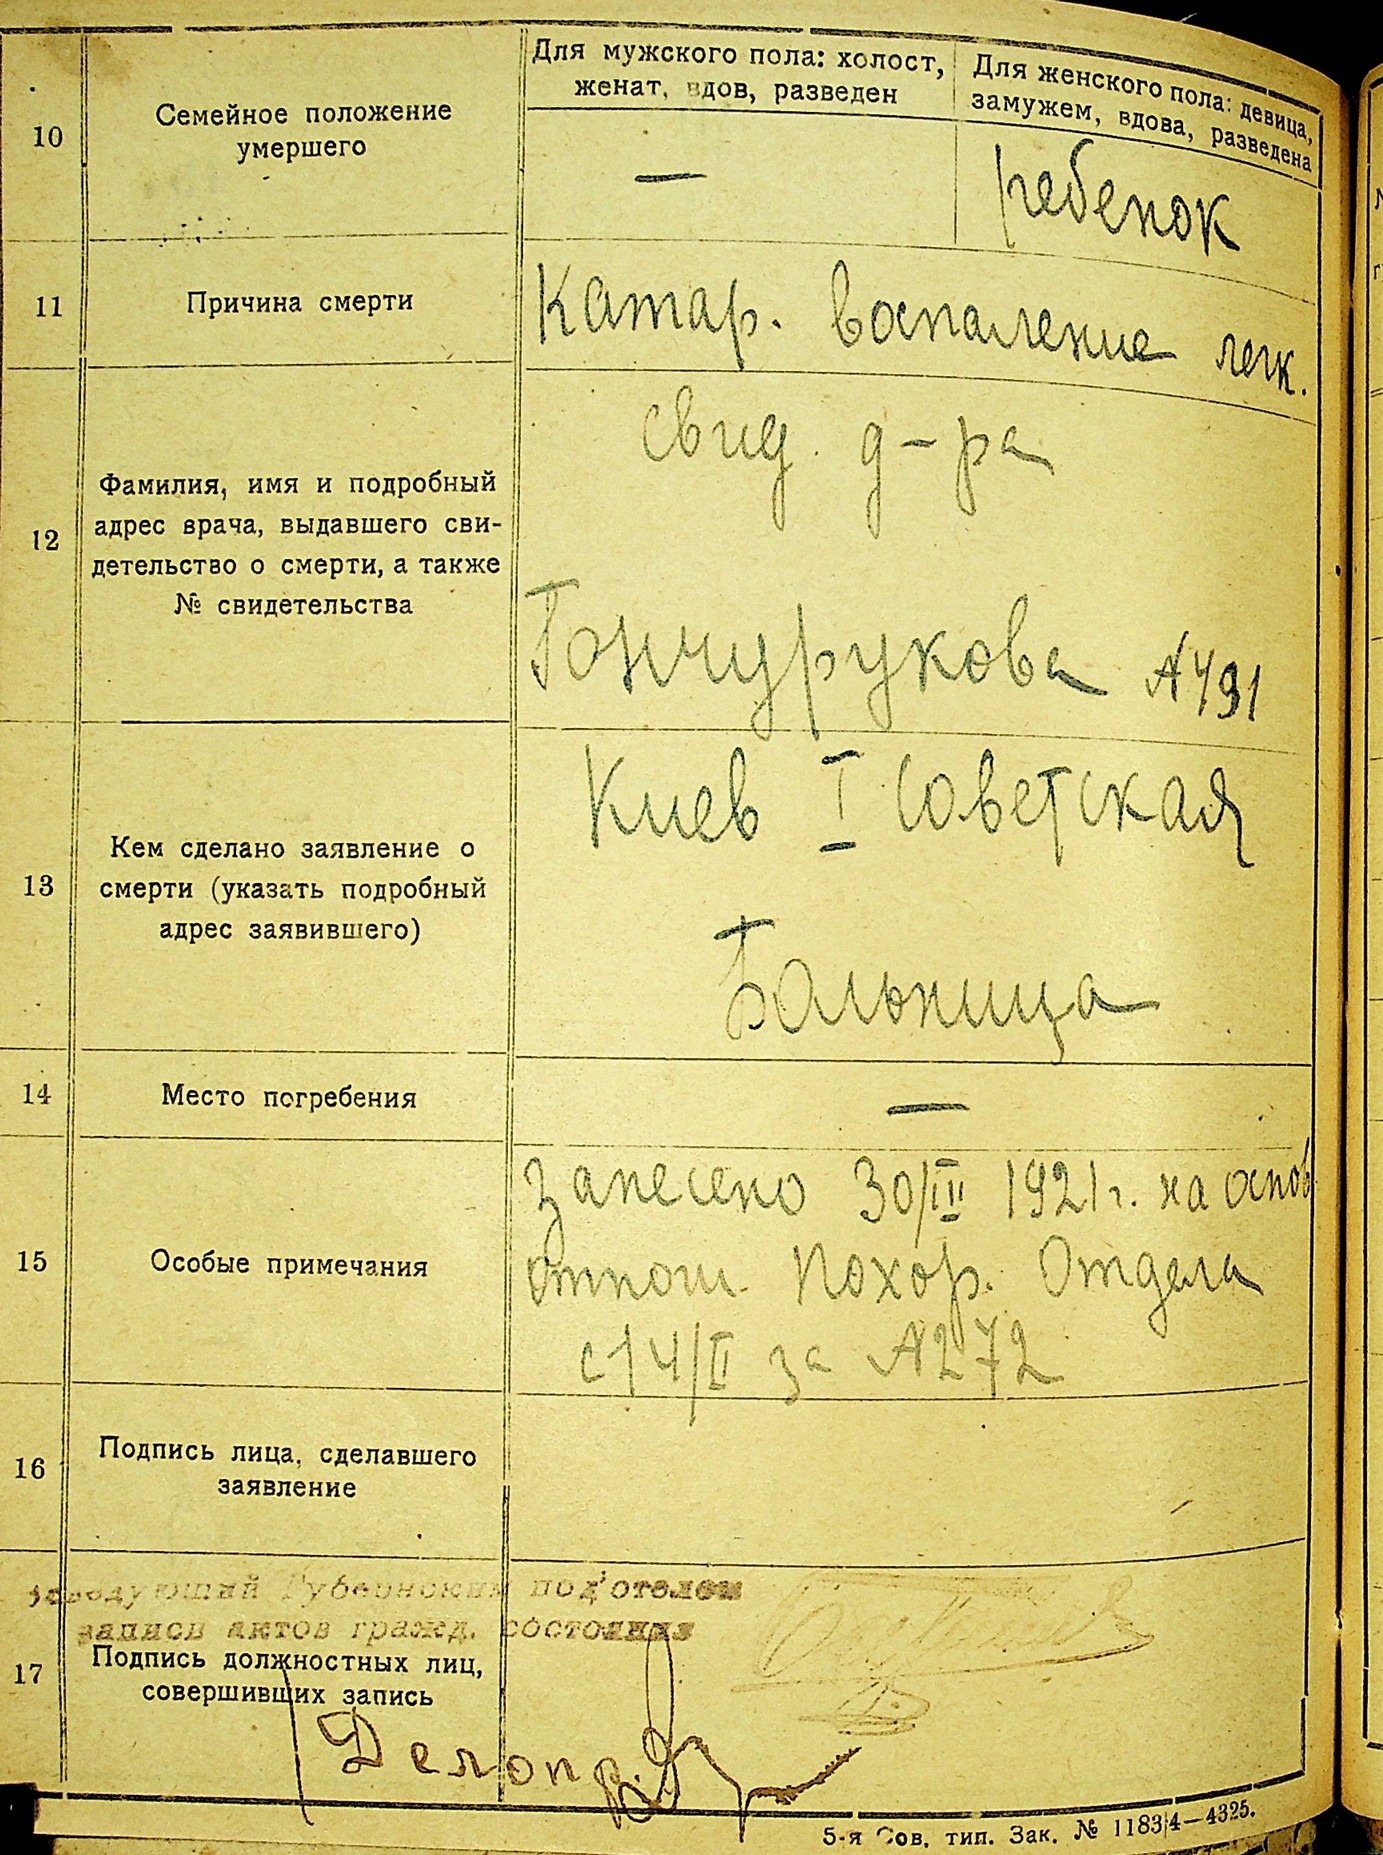 Для мужского пола: холост,
женат, вдов, разведен
Для женского пола: девица,
замужем, вдова, разведена
10
Семейное положение
умершего
—
ребенок
11
Причина смерти
Катар. воспаление легк.
12
Фамилия, имя и подробный
адрес врача, выдавшего сви-
детельство о смерти, а также
№ свидетельства
свид. д-ра
Гончурукова №491
13
Кем сделано заявление о
смерти (указать подробный
адрес заявившего)
Киев I Советская
Больница
14
Место погребения
—
15
Особые примечания
Занесено 30/III 1921 г. на основ
отнош. Похор. Отдела
с 14/II за №272
16
Подпись лица, сделавшего
заявление
Заведующий Губернским под'отделом
записи актов гражд. состояния
17
Подпись должностных лиц,
совершивших запись
Делопр.
5-я Сов. тип. Зак. № 11834—4325.